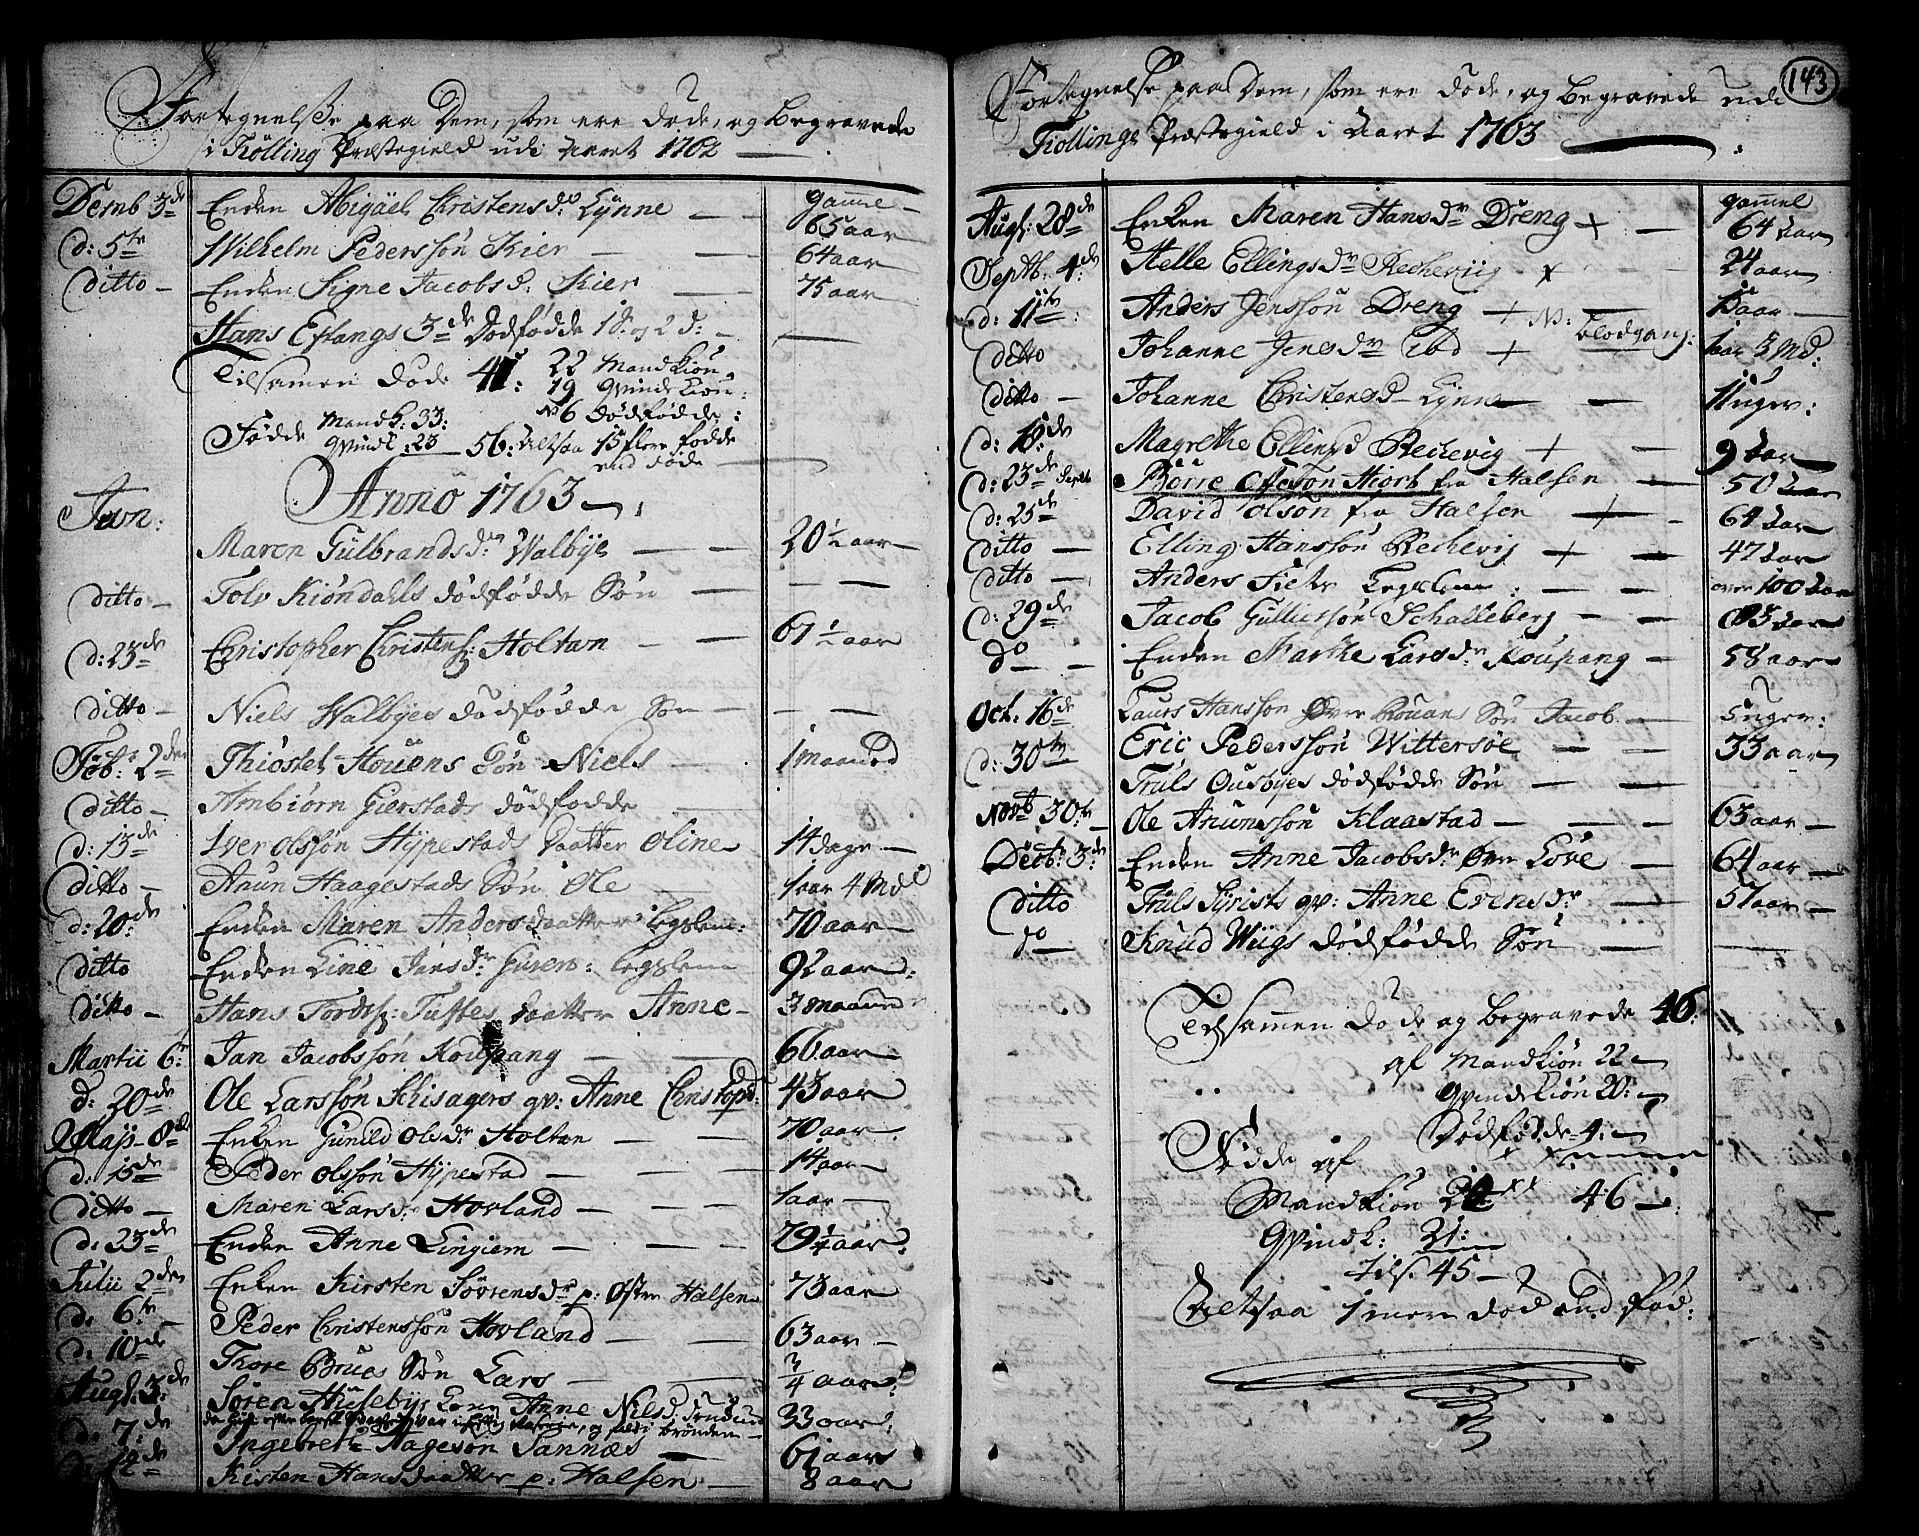 Fortegnelse paa Dem, som ere døde, og Begravede
i Tiølling Præstegield udi Aaret 1762
Decmb 3de Enken Abigael Christensdr Lynne — — gamel 65 aar
d: 5te Wilhelm Pederssøn Kier — — 64 aar
ditto — Enken Signe Jacobsd. Kier — — 75 aar
Hans Eftangs 3de Dødfødde 1 d. og 2 d: —
Tilsamen døde 41: 22 Mandkiøn
19 Qvindekiøn
No 6 dødfødde:
Fødde Mandk: 33:
Qvindk: 23 56: altsaa 15 flere fødde
end døde —
Anno 1763
Jan: Maren Gulbrandsdr Walbye — — 20 1/2 aar
ditto — Tolv Kiøndahls dødfødde Søn — — —
d: 23de Christopher Christens: Holtan — — 67 1/2 aar
ditto — Niels Walbyes dødfødde Søn — — —
Feb: 2den Thiøstel Houens Søn Niels — 1 maaned
ditto — Ambiørn Gierstads dødfødde —
d: 13de Iver Olssøn Hypestads Daatter Oline — 14 dage —
ditto — Anun Haagestads Søn Ole — 1 aar 4 Md
d: 20de Enken Maren Andersdaatter Legslem: 70 aar —
ditto Enken Line Jensdr Guren: Legslem 92 aar
ditto — Hans Tordss: Tuftes Daatter Anne — 3 maaned
Martii 6te Jan Jacobssøn Koupang — — 66 aar
d: 20de Ole Larssøn Schisagers qv: Anne Christopd: 43 aar
Maji 8de Enken Gunild Olsdr Holtan — — 70 aar
d. 15de Peder Olssøn Hypestad — — 14 aar —
ditto — Maren Larsd: Hovland — — 1 aar —
d. 23de Enken Anne Lingiem — — 79 1/4 aar
Julii 2den Enken Kirsten Sørensdr p: Østre Halsen 73 aar
d. 6te — Peder Christenssøn Hovland — — 63 aar —
d. 10de Thore Bruas Søn Lars — — 3/4 aar
Aug: 3de Søren Husebyes Kone Anne Nielsd. 33 aar
d. 7de Ingebret Aageson Sannes — 61 aar
d. 14de Kisten Hansdaatter p: Halsen — 8 aar
143
Fortegnelse paa Dem, som ere døde, og Begravede udi
Tiøllings Præstegield i Aaret 1763
Aug: 28de Enken Maren Hansdr Dreng + — gamel 64 aar
Septb: 4de Helle Ellingsdr Rechevig + — 24 aar
d: 11te: Anders Jenssøn Dreng + —
ditto Johanne Jensdr + NB: blodgang: 1 aar 3 Md:
ditto — Johanne Christensd Lynne — 11 uger:
d: 18de Magrethe Ellingsd Rechevig + — 9 aar
d: 23de Septb Børre Hiort fra Halsen — 50 aar
d: 25de David Olson fra Halsen + — 64 aar
ditto — Elling Hanssøn Rechevig + — 47 aar
ditto — Anders Legslem: — over 100 aar
d: 29de Jacob Gulliessøn Schalleberg — — aar
do — — Enken Marthe Larsdr Koupang — 58 aar
Oct. 16de Laurs Hanssøn Søn Jacob — 5 uger:
d: 30te Eric Pederssøn Wittersøe — — 33 aar
Truls Ousbyes dødfødde Søn — —
Novb 30te — Ole Anunssøn Klaastad — — 63 aar —
Decb: 3de Enken Anne Jacobsdr Øvre Løve — 64 aar —
ditto Truls Syrists qv: Anne Evensdr — 57 aar —
do — Knud Wiigs dødfødde Søn — —
Tilsamen døde og begravede 46:
af Mandkiøn 22
Qvindekiøn 20:
Dødfødde 4:
Fødde af
Mandkiøn 24 46
Qvindk: 21:
Tils. 45
Altsaa 1 mere død end fød: